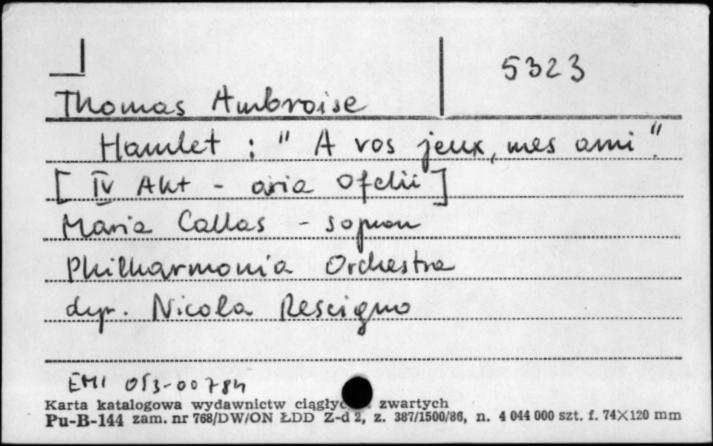 5323
Thomas Ambroise
Hamlet : " A vos jeux, mes ami".
[ IV Akt - aria Ofelii ]
Maria Callas - sopran
Philharmonia Orchestra
dyr. Nicola Rescigno
EMI 053-00784
Karta katalogowa wydawnictw zwartych
Pu-B-144 zam. nr 768/DW/ON ŁDD Z-d 2, z. 387/1500/86, n. 4 044 000 szt. f. 74×120 mm